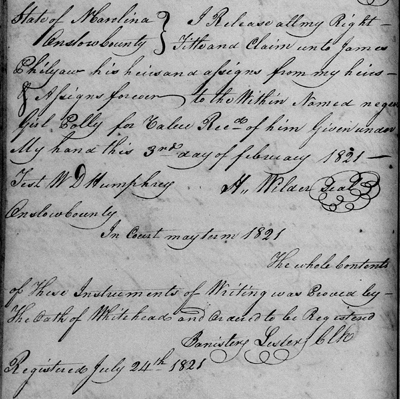 State of N Carolina } I Release all my Right
Onslow County } Title and Claim unto James
Philyaw his heirs and assigns from my heirs
& Assigns forever to the Within Named negro
Girl Polly for Value Recd of him Given under
My hand this 3rd day of february 1821
Test W D Humphrey H. Wilder Seal
Onslow County
In Court may term 1821
The whole Contents
of These Instruments of Writing was Proved by
The Oath of Whitehead and Ordered to be Registered
Banister Lester Clk
Registered July 24th 1821